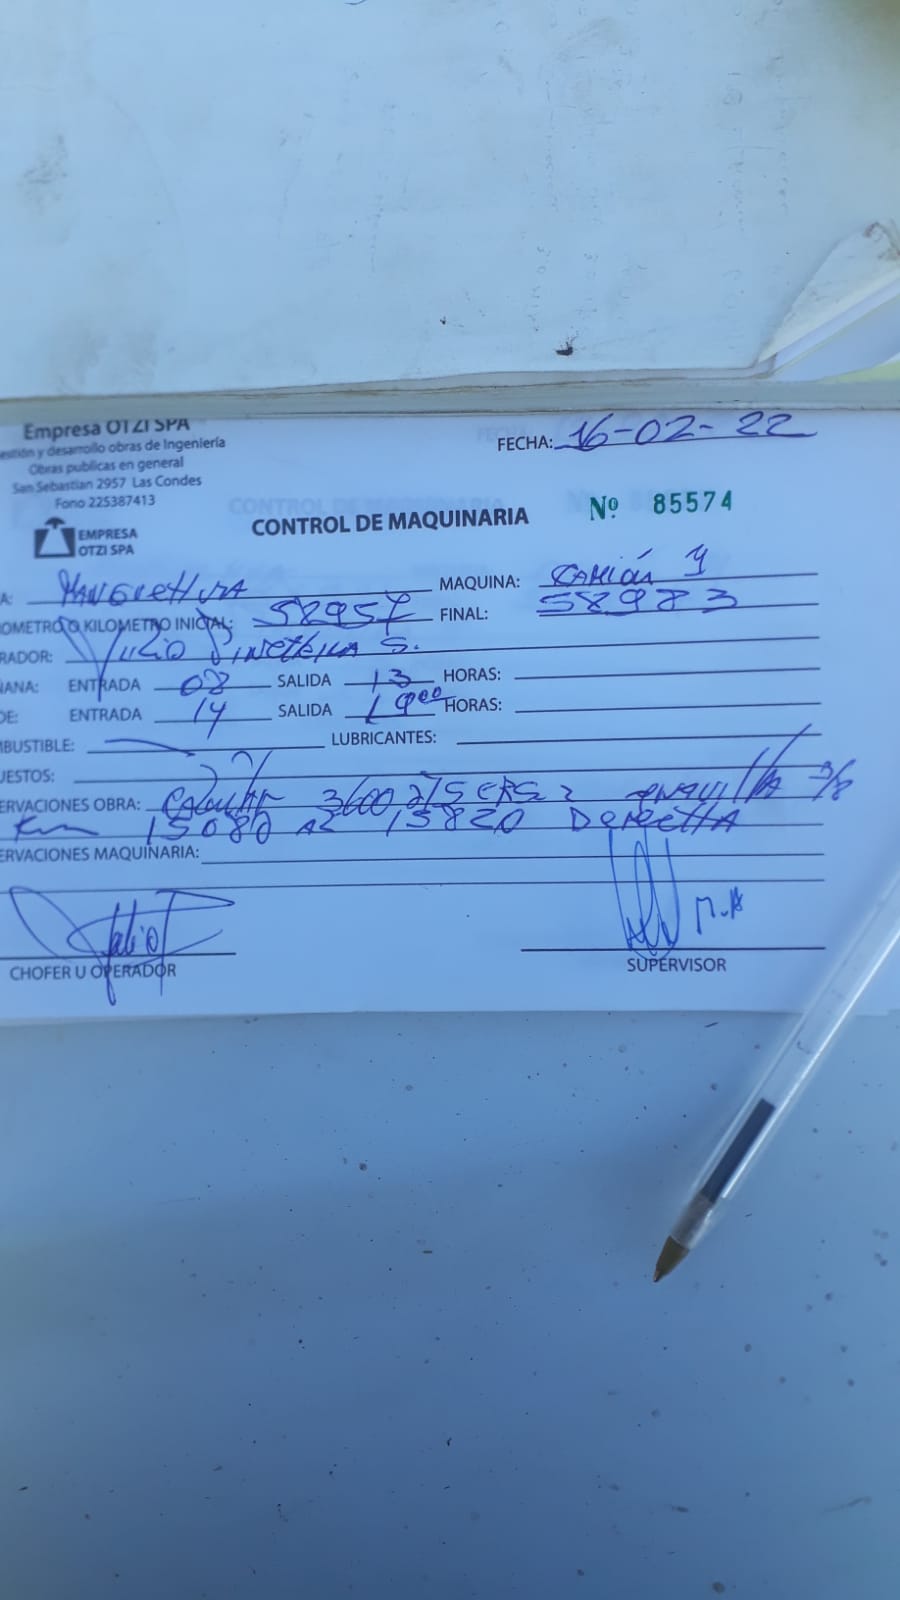 Empresa OTZI SPA
estión y desarrollo obras de Ingeniería
Obras publicas en general
San Sebastian 2957 Las Condes
Fono 225387413
EMPRESA
OTZI SPA
FECHA: 16-02-22
CONTROL DE MAQUINARIA
Nº 85574
A: MAQUINA: CAMIÓN
OMETRO O KILOMETRO INICIAL: 58957 FINAL: 58983
RADOR: Julio S.
ÑANA: ENTRADA 08 SALIDA 13 HORAS:
DE: ENTRADA 14 SALIDA 19°° HORAS: 
MBUSTIBLE: LUBRICANTES:
UESTOS:
ERVACIONES OBRA: 3600
Km 15080 AL 15820 DERECHA
ERVACIONES MAQUINARIA:
CHOFER U OPERADOR
SUPERVISOR